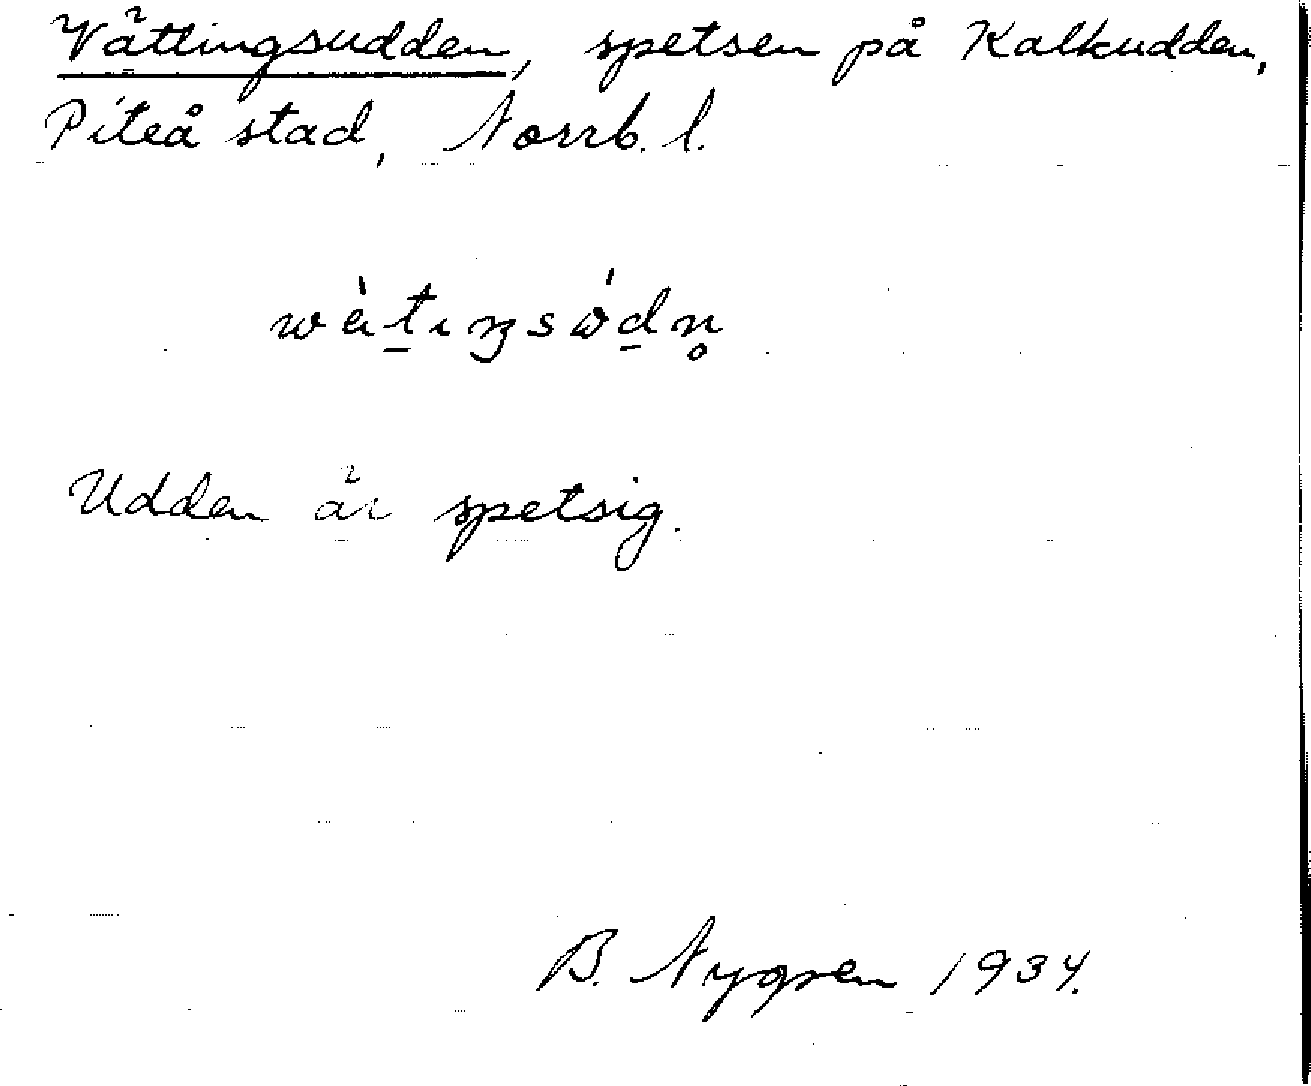 Vättingsudden, spetsen på Kalkudden,
Piteå stad, Norrb. l.
Udden är spetsig.
B. Nygren 1934.